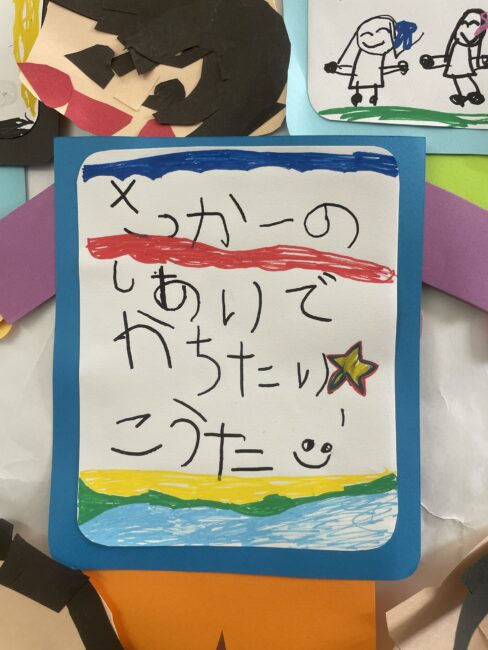 さっかーの
しあいで
かちたい
こうた